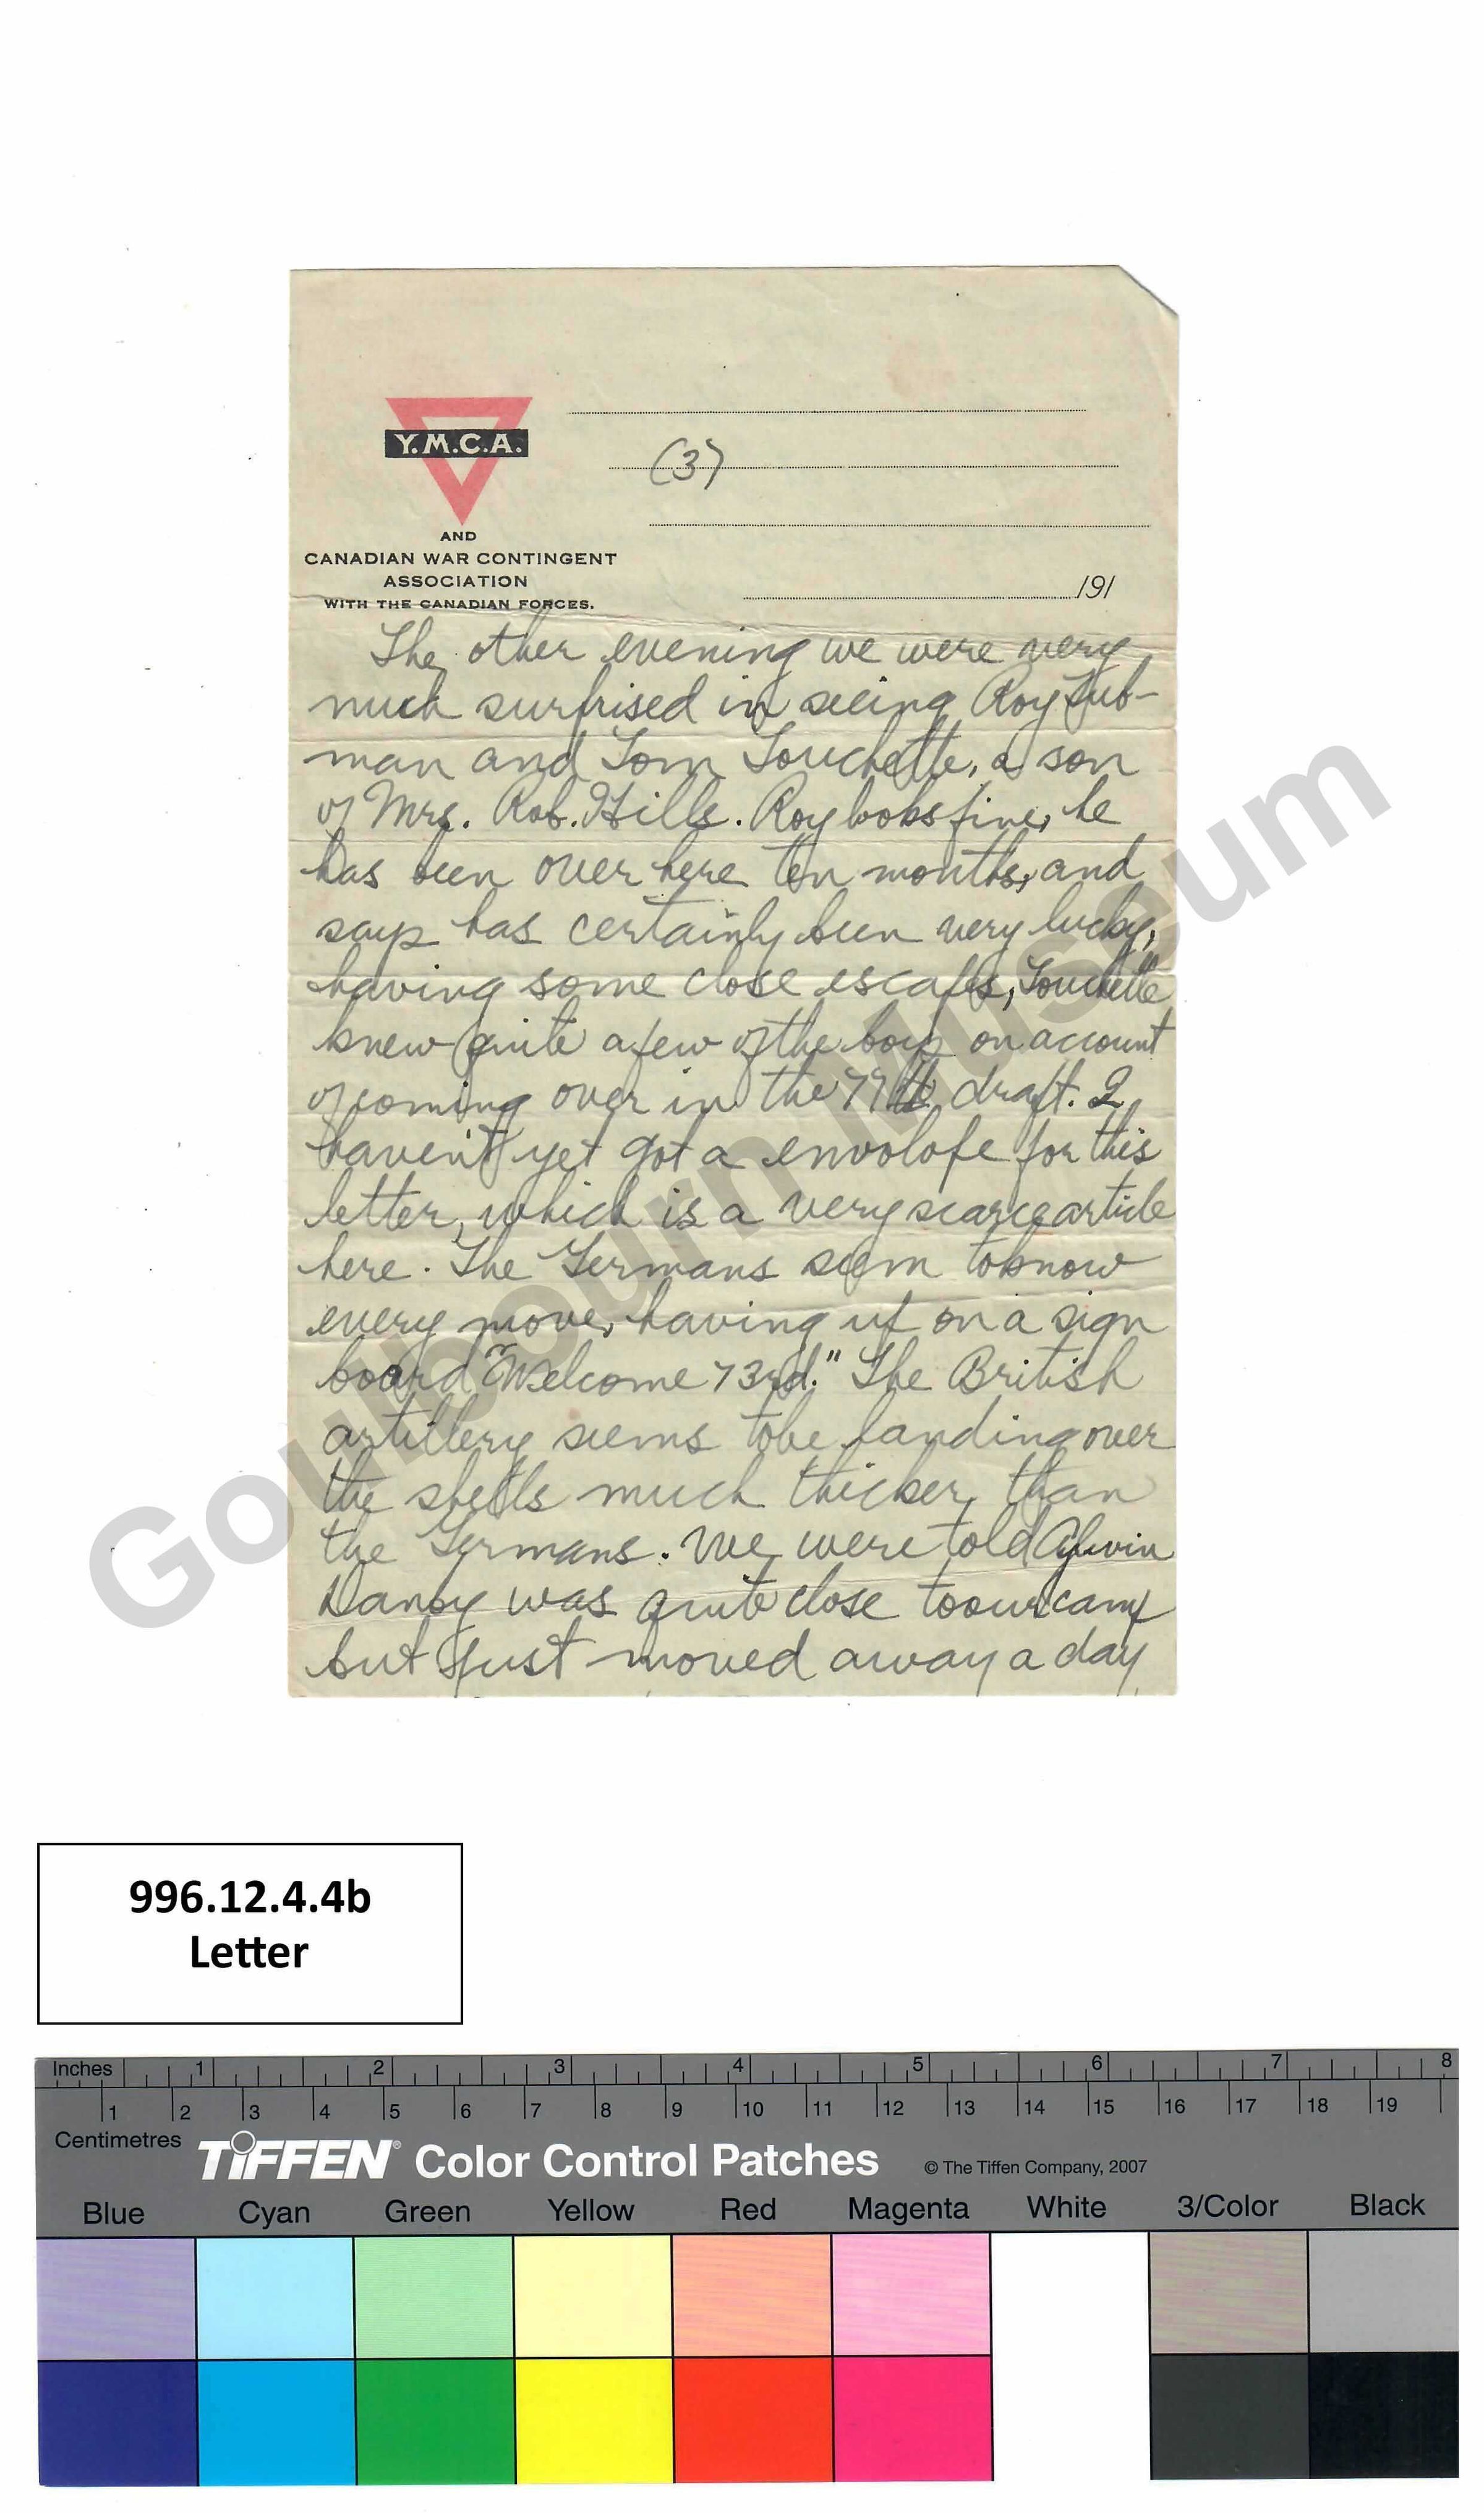 Y.M.C.A.
AND
CANADIAN WAR CONTINGENT
ASSOCIATION
WITH THE CANADIAN FORCES.
(3)
191
The other evening we were very
much surprised in seeing Roy
man and Tom Touchette, a son
of Mrs. Rob. Hills. Roy looks fine, he
has been over here ten months, and
says has certainly been very lucky,
having some close escapes, Touchette
knew quite a few of the boys on account
of coming over in the 77th draft. I
haven't yet got a envolope for this
letter, which is a very scarce article
here. The Germans seem to know
every move, having up on a sign
board "Welcome 73rd." The British
artillery seems to be handing over
the shells much thicker than
the Germans. We were told
was quite close to our camp
but just moved away a day
Goulbourn Museum
996.12.4.4b
Letter
Inches 1 2 3 4 5 6 7 8
1 2 3 4 5 6 7 8 9 10 11 12 13 14 15 16 17 18 19
Centimetres
TIFFEN® Color Control Patches © The Tiffen Company, 2007
Blue Cyan Green Yellow Red Magenta White 3/Color Black